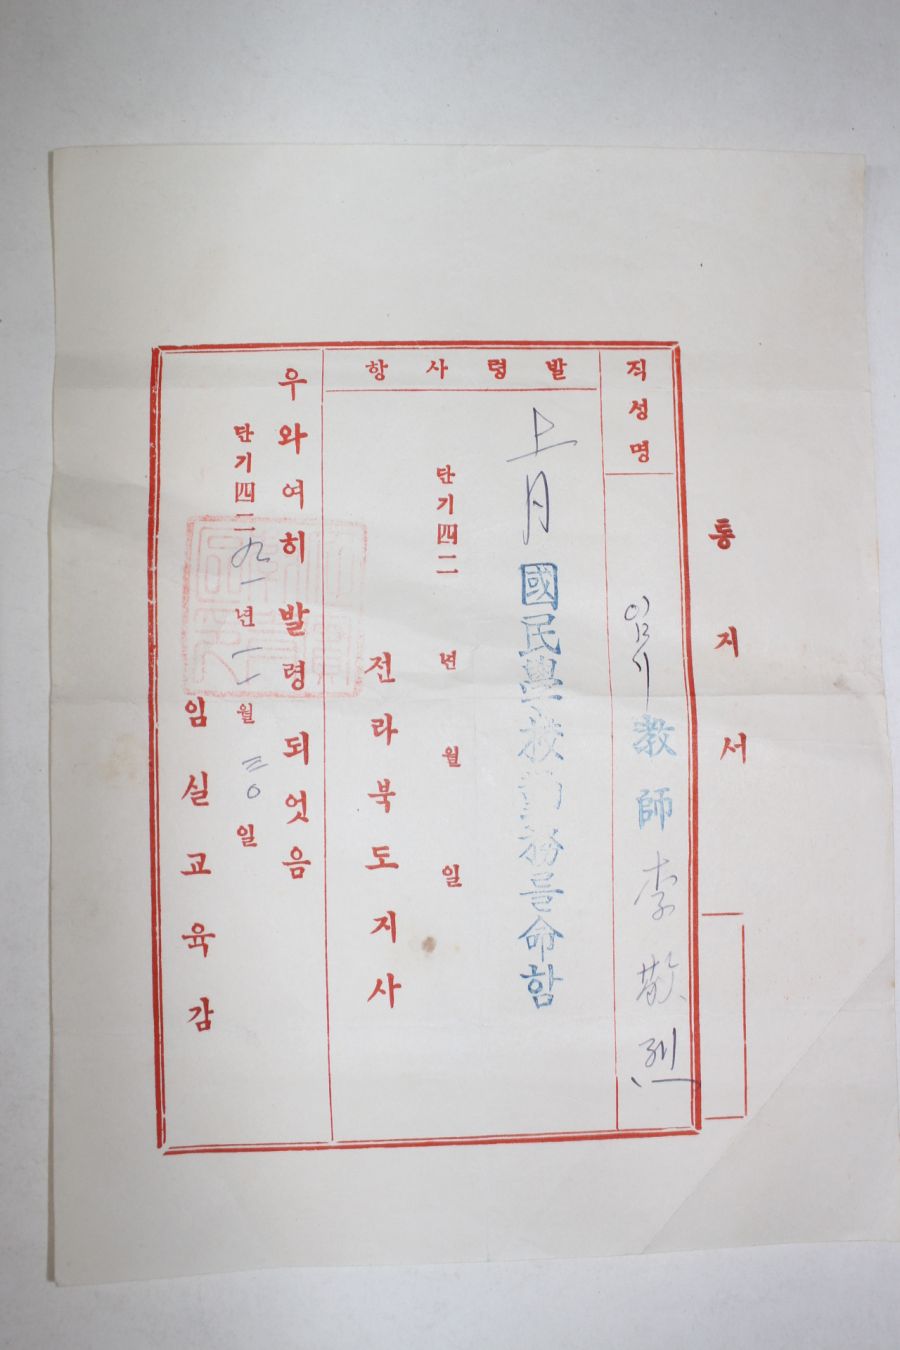 통지서
직성명
임시教師李敬烈
발령사항
上月國民學校勤務를命함
단기四二 년 월 일
전라북도지사
우와여히발령되엇음
단기四二九一年一一월三〇일
임실교육감